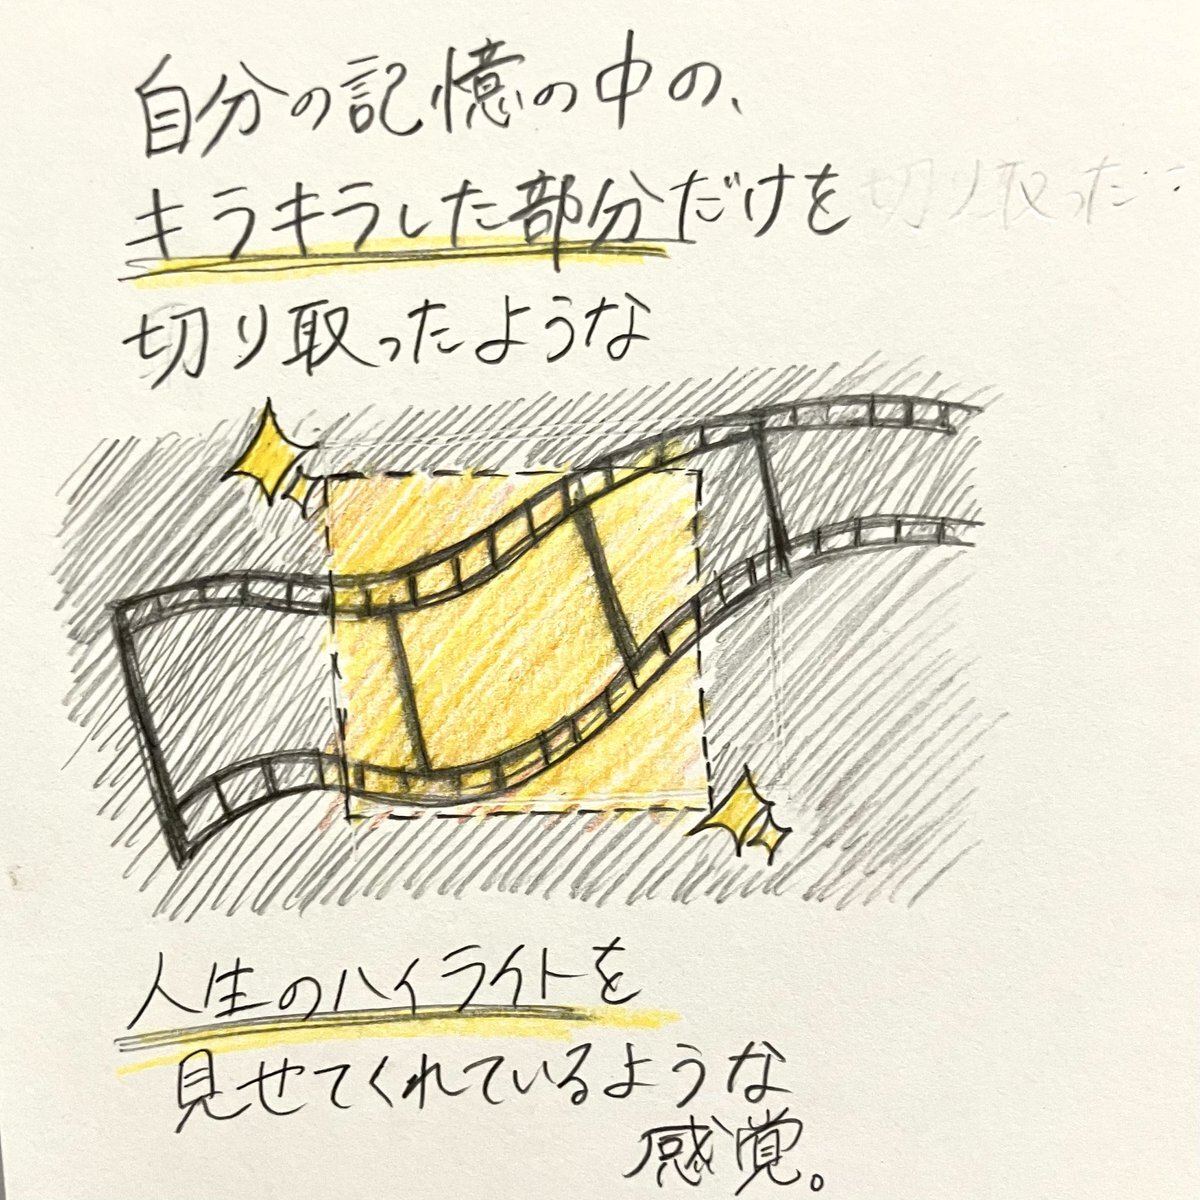 自分の記憶の中の、
キラキラした部分だけを 切り取った
切り取ったような
人生のハイライトを
見せてくれているような
感覚。